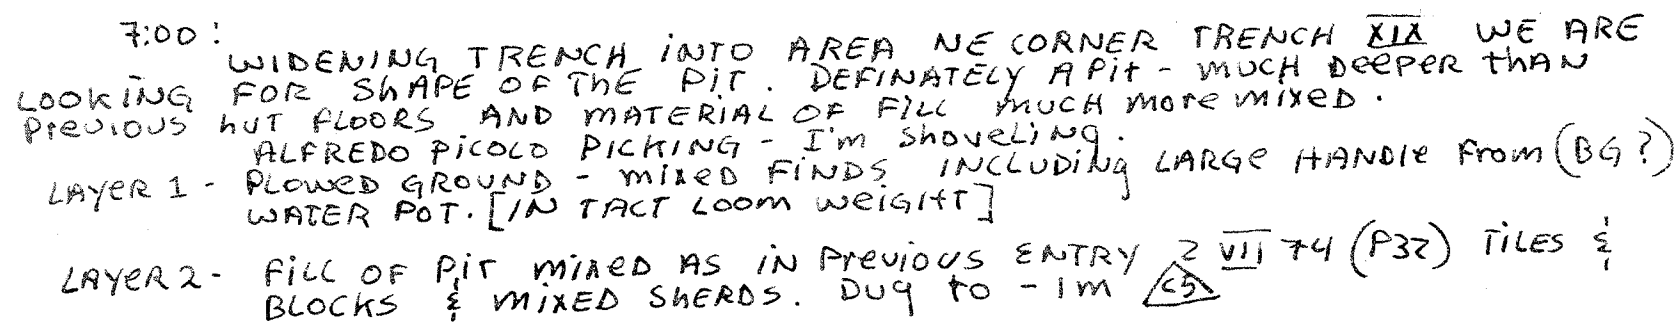 7:00:
WIDENING TRENCH INTO AREA NE CORNER TRENCH XIX WE ARE
LOOKING FOR SHAPE OF THE PIT. DEFINATELY A PIT - MUCH DEEPER THAN
PREVIOUS HUT FLOORS AND MATERIAL OF FILL MUCH MORE MIXED.
ALFREDO PICOLO PICKING - I'M SHOVELING.
LAYER 1 - PLOWED GROUND - MIXED FINDS INCLUDING LARGE HANDLE FROM (BG?)
WATER POT. [IN TACT LOOM WEIGHT]
LAYER 2 - FILL OF PIT MIXED AS IN PREVIOUS ENTRY 2 VII 74 (P32) TILES &
BLOCKS & MIXED SHERDS. DUG TO -1M C5